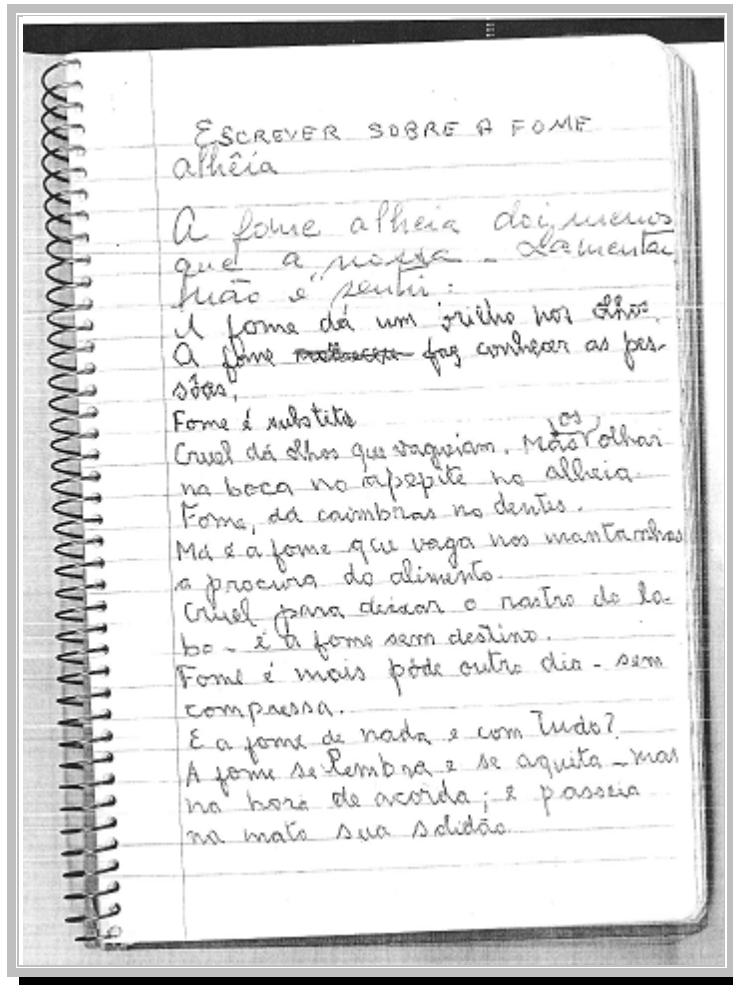 ESCREVER SOBRE A FOME
alhêia
A fome alheia doi menos
que a nossa - Lamentar
não é sentir:
A fome dá um brilho nos olhos.
A fome faz conhecer as pes-
sôas,
Fome é substito
Cruel dá olhos que vagueiam. Mãos os olhar
na boca no apepite no alheia.
Fome, dá caimbras no dentes.
Má é a fome que vaga nos mantanhas
a procura do alimento.
Cruel para deixar o rastro do lo-
bo - é a fome sem destino.
Fome é mais póde outro dia - sem
compressa.
E a fome de nada e com Tudo?
A fome se lembra e se aquita - mas
na hora de acorda; e passeia
na mato sua solidão